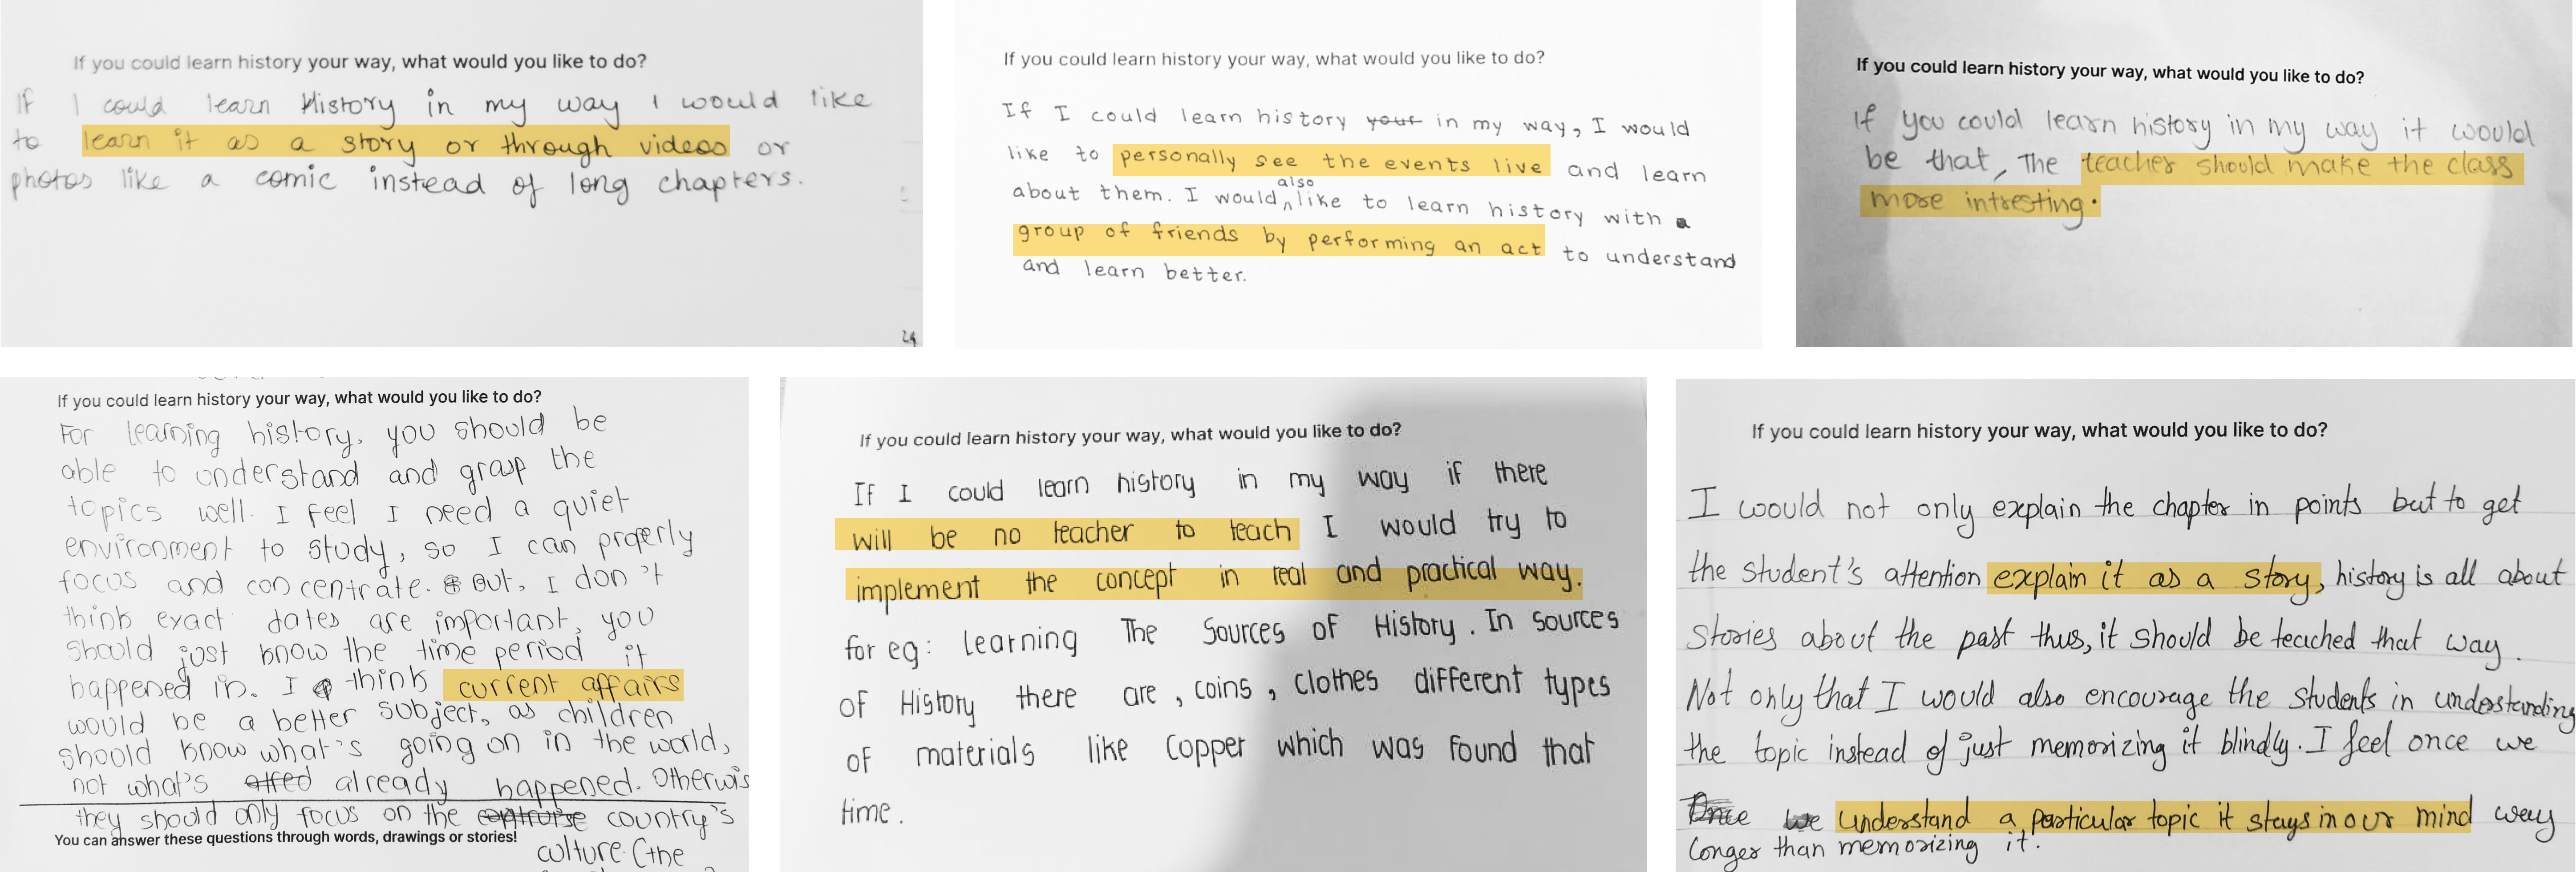 If you could learn history your way, what would you like to do?
If I could learn History in my way I would like
to learn it as a story or through videos or
photos like a comic instead of long chapters.
If you could learn history your way, what would you like to do?
If I could learn history your in my way, I would
like to personally see the events live and learn
about them. I would also like to learn history with a
group of friends by performing an act to understand
and learn better.
If you could learn history your way, what would you like to do?
If you could learn history in my way it would
be that, The teacher should make the class
more intresting.
If you could learn history your way, what would you like to do?
For learning history, you should be
able to understand and grasp the
topics well. I feel I need a quiet
environment to study, so I can properly
focus and concentrate. But, I don't
think exact dates are important, you
should just know the time period it
happened in. I think current affairs
would be a better subject, as children
should know what's going on in the world,
not what's already happened. Otherwis
they should only focus on the country's
You can answer these questions through words, drawings or stories!
culture (the
If you could learn history your way, what would you like to do?
If I could learn history in my way if there
will be no teacher to teach I would try to
implement the concept in real and practical way.
for eg: Learning The Sources of History. In sources
of History there are, coins, clothes different types
of materials like Copper which was found that
time.
If you could learn history your way, what would you like to do?
I would not only explain the chapter in points but to get
the student's attention explain it as a story, history is all about
stories about the past thus, it should be teached that way.
Not only that I would also encourage the students in understanding
the topic instead of just memorizing it blindly. I feel once we
Once we understand a particular topic it stays in our mind way
longer than memorizing it.